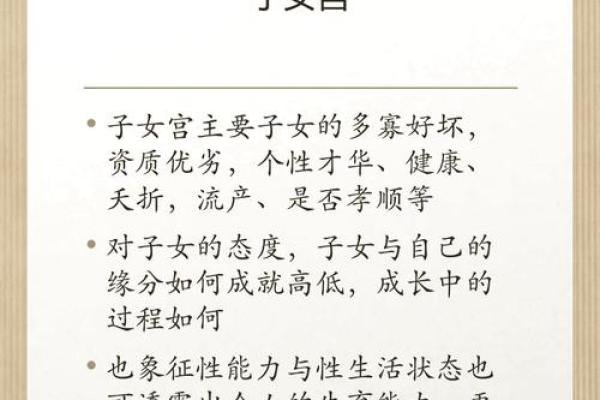 子女宫
子女宫主要子女的多寡好坏，
资质优劣，个性才华、健康、
夭折，流产、是否孝顺等
对子女的态度，子女与自己的
缘分如何成就高低，成长中的
过程如何
也象征性能力与性生活状态也